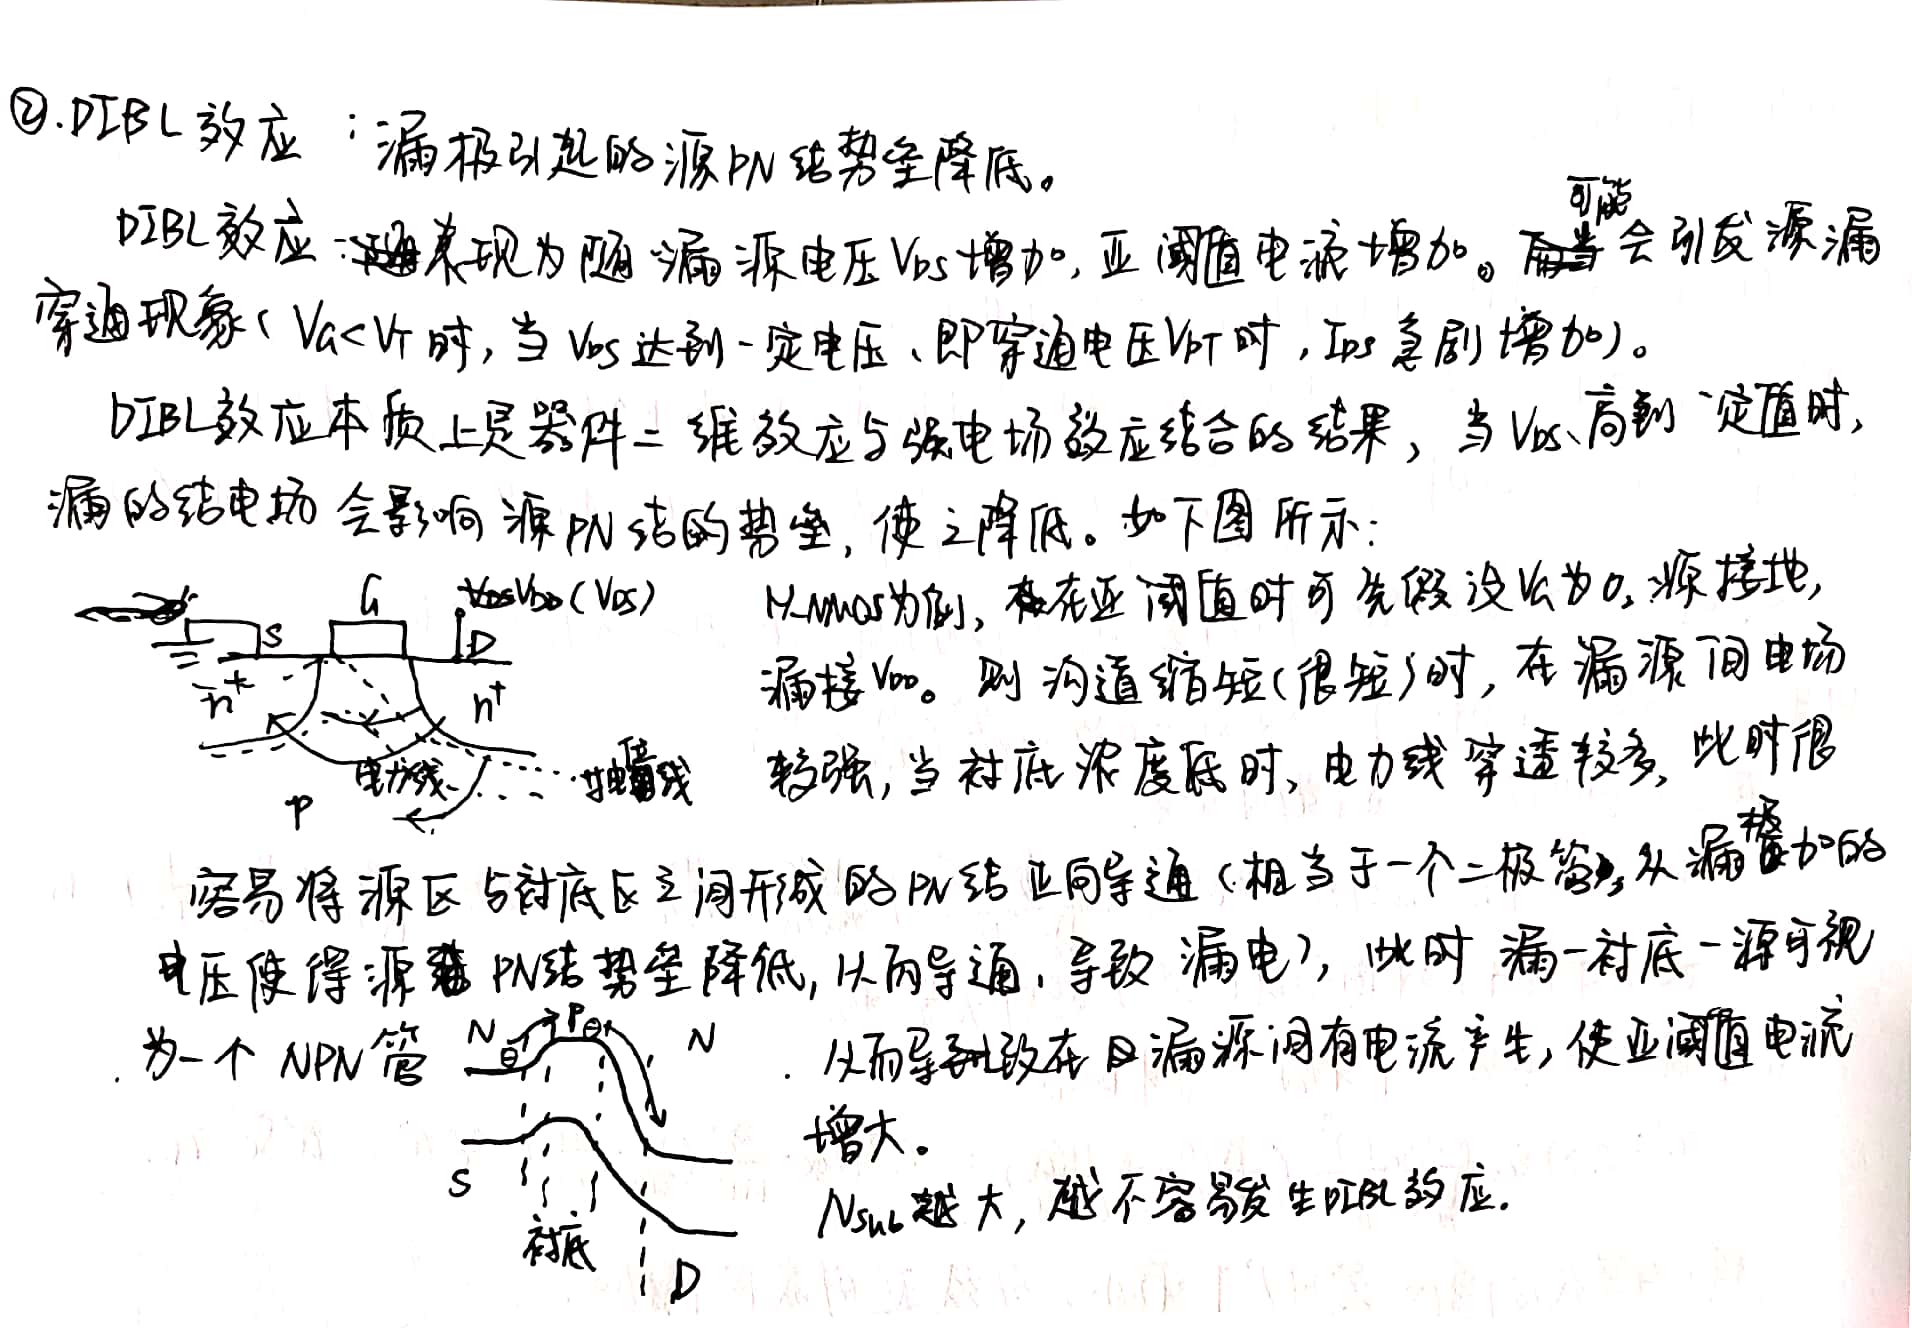 ②.DIBL效应：漏极引起的源PN结势垒降低。
DIBL效应：表现为随漏源电压VDS增加,亚阈值电流增加。可能会引发源漏
穿通现象(VG<VT时,当VDS达到一定电压、即穿通电压VPT时,IDS急剧增加)。
DIBL效应本质上是器件二维效应与强电场效应结合的结果,当VDS高到一定值时,
漏的结电场会影响源PN结的势垒,使之降低。如下图所示:
G
VDD(VDS)
S
D
n+
n+
电力线
P
以NMOS为例,在亚阈值时可先假设VG为0,源接地,
漏接VDD。则沟道缩短(很短)时,在漏源间电场
较强,当衬底浓度低时,电力线穿透较多,此时很
容易将源区与衬底区之间形成的PN结正向导通(相当于一个二极管,从漏加的
电压使得源PN结势垒降低,从而导通,导致漏电),此时漏-衬底-源可视
为一个NPN管
N
P
N
S
衬底
D
从而导致在漏源间有电流产生,使亚阈值电流
增大。
Nsub越大,越不容易发生DIBL效应.